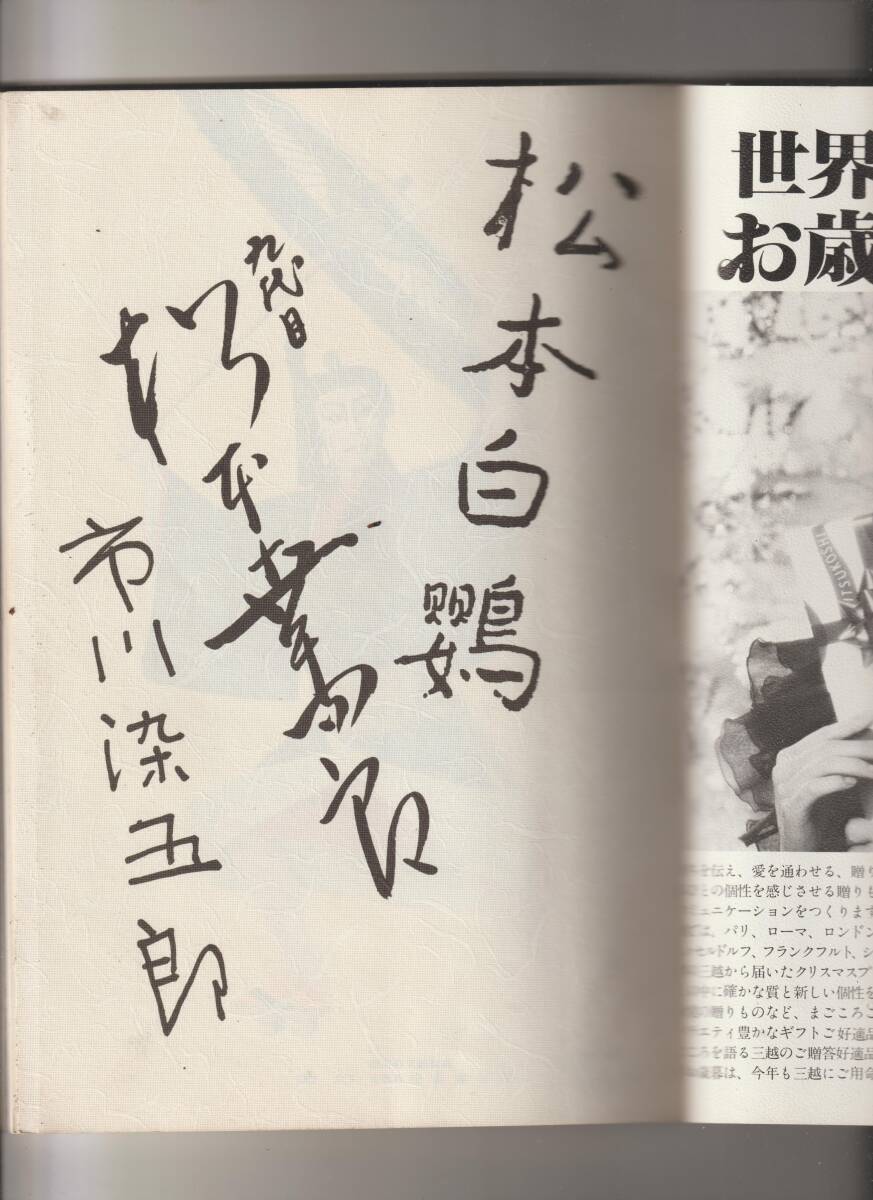 松本白鸚
九代目
松本幸四郎
市川染五郎
世界
お歳
を伝え、愛を通わせる、贈り
との個性を感じさせる贈りも
ミュニケーションをつくります
は、パリ、ローマ、ロンドン
セルドルフ、フランクフルト、シ
三越から届いたクリスマスプ
中に確かな質と新しい個性を
の贈りものなど、まごころこ
エティ豊かなギフトご好適品
ころを語る三越のご贈答好適品
歳暮は、今年も三越にご用命
ITSUKOSHI